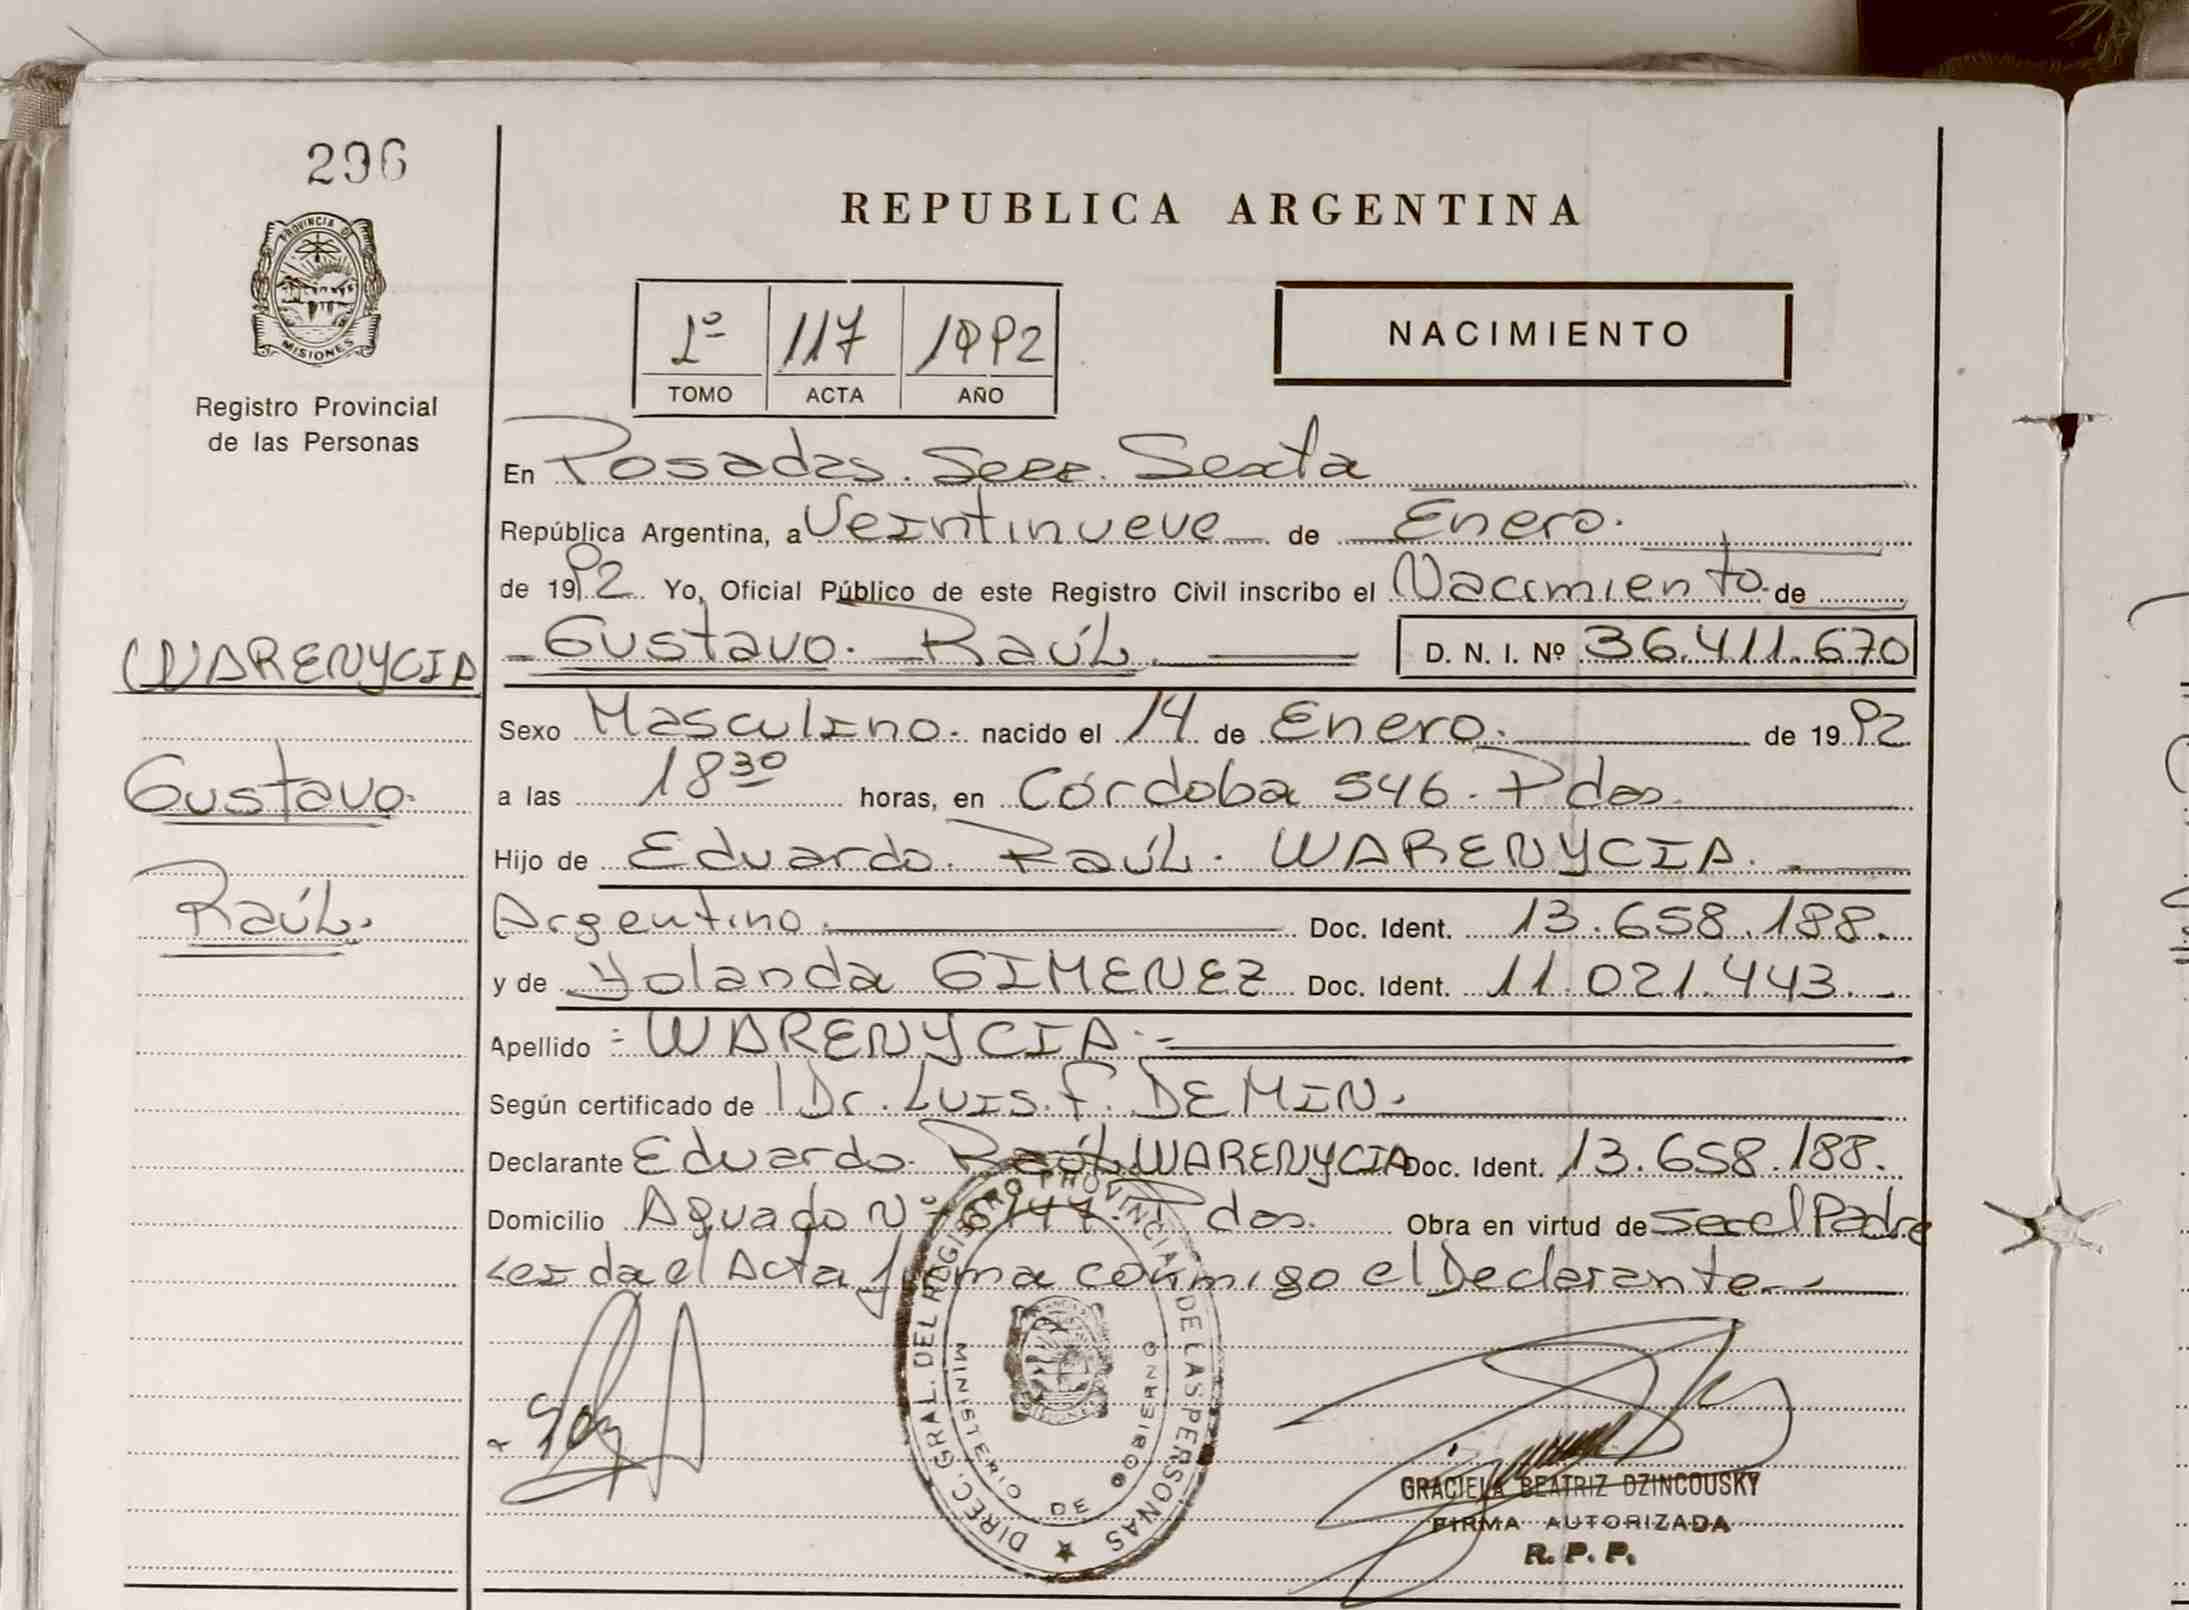 296
PROVINCIA DE
MISIONES
Registro Provincial
de las Personas
REPUBLICA ARGENTINA
1º 117 1992
TOMO ACTA AÑO
NACIMIENTO
En Posadas. Secc. Sexta
República Argentina, a Veintinueve de Enero.
de 1992. Yo, Oficial Público de este Registro Civil inscribo el Nacimiento de
Gustavo. Raúl. D. N. I. Nº 36.411.670
WARENYCIA
Gustavo.
Raúl.
Sexo Masculino. nacido el 14 de Enero. de 1992
a las 18 30 horas, en Córdoba 546. Pdas.
Hijo de Eduardo. Raúl. WARENYCIA.
Argentino. Doc. Ident. 13.658.188.
y de Yolanda GIMENEZ Doc. Ident. 11.021.443.
Apellido = WARENYCIA.=
Según certificado de Dr. Luis. F. DE MIN.
Declarante Eduardo. Raúl WARENYCIA Doc. Ident. 13.658.188.
Domicilio Aguado Nº Pdas. Obra en virtud de ser el Padre
Leida el Acta firma conmigo el Declarante.
DIREC. GRAL. DEL REGISTRO PROVINCIAL DE LAS PERSONAS
MINISTERIO DE GOBIERNO
GRACIELA BEATRIZ DZINCOUSKY
FIRMA AUTORIZADA
R. P. P.